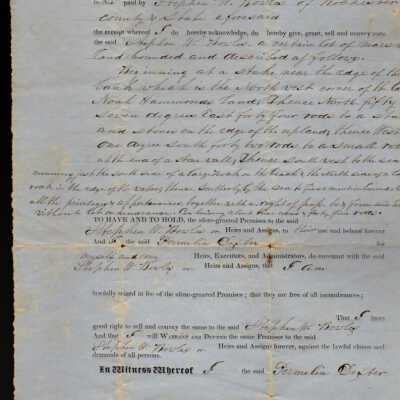 in this paid by Stephen W. Howles of Rochester
county & State aforesaid
the receipt whereof I do hereby acknowledge, do hereby give, grant, sell and convey unto
the said Stephen W. Howles, a certain lot of
land bounded and described as follows.
Beginning at a Stake near the edge of the
bank which is the North west corner of the
Noah Hammonds land, Thence North fifty
Seven degree East forty four rods to a
and stones on the edge of the upland, thence West
one degree South forty two rods to a small
at the end of a Stone wall, Thence South west to the
running just the South side of a large rock on the
rock in the edge of the water, thence
all the privileges & appurtenances together with a right of
TO HAVE AND TO HOLD, the afore-granted Premises to the said
Stephen W. Howles or Heirs and Assigns, to their use and behoof forever
And I the said Permelia Dexter for
myself and my Heirs, Executors, and Administrators, do covenant with the said
Stephen W. Howles or Heirs and Assigns, that I am
lawfully seized in fee of the afore-granted Premises; that they are free of all incumbrances;
That I have
good right to sell and convey the same to the said Stephen W. Howles
And that I will WARRANT AND DEFEND the same Premises to the said
Stephen W. Howles or Heirs and Assigns forever, against the lawful claims and
demands of all persons.
In Witness Whereof I the said Permelia Dexter